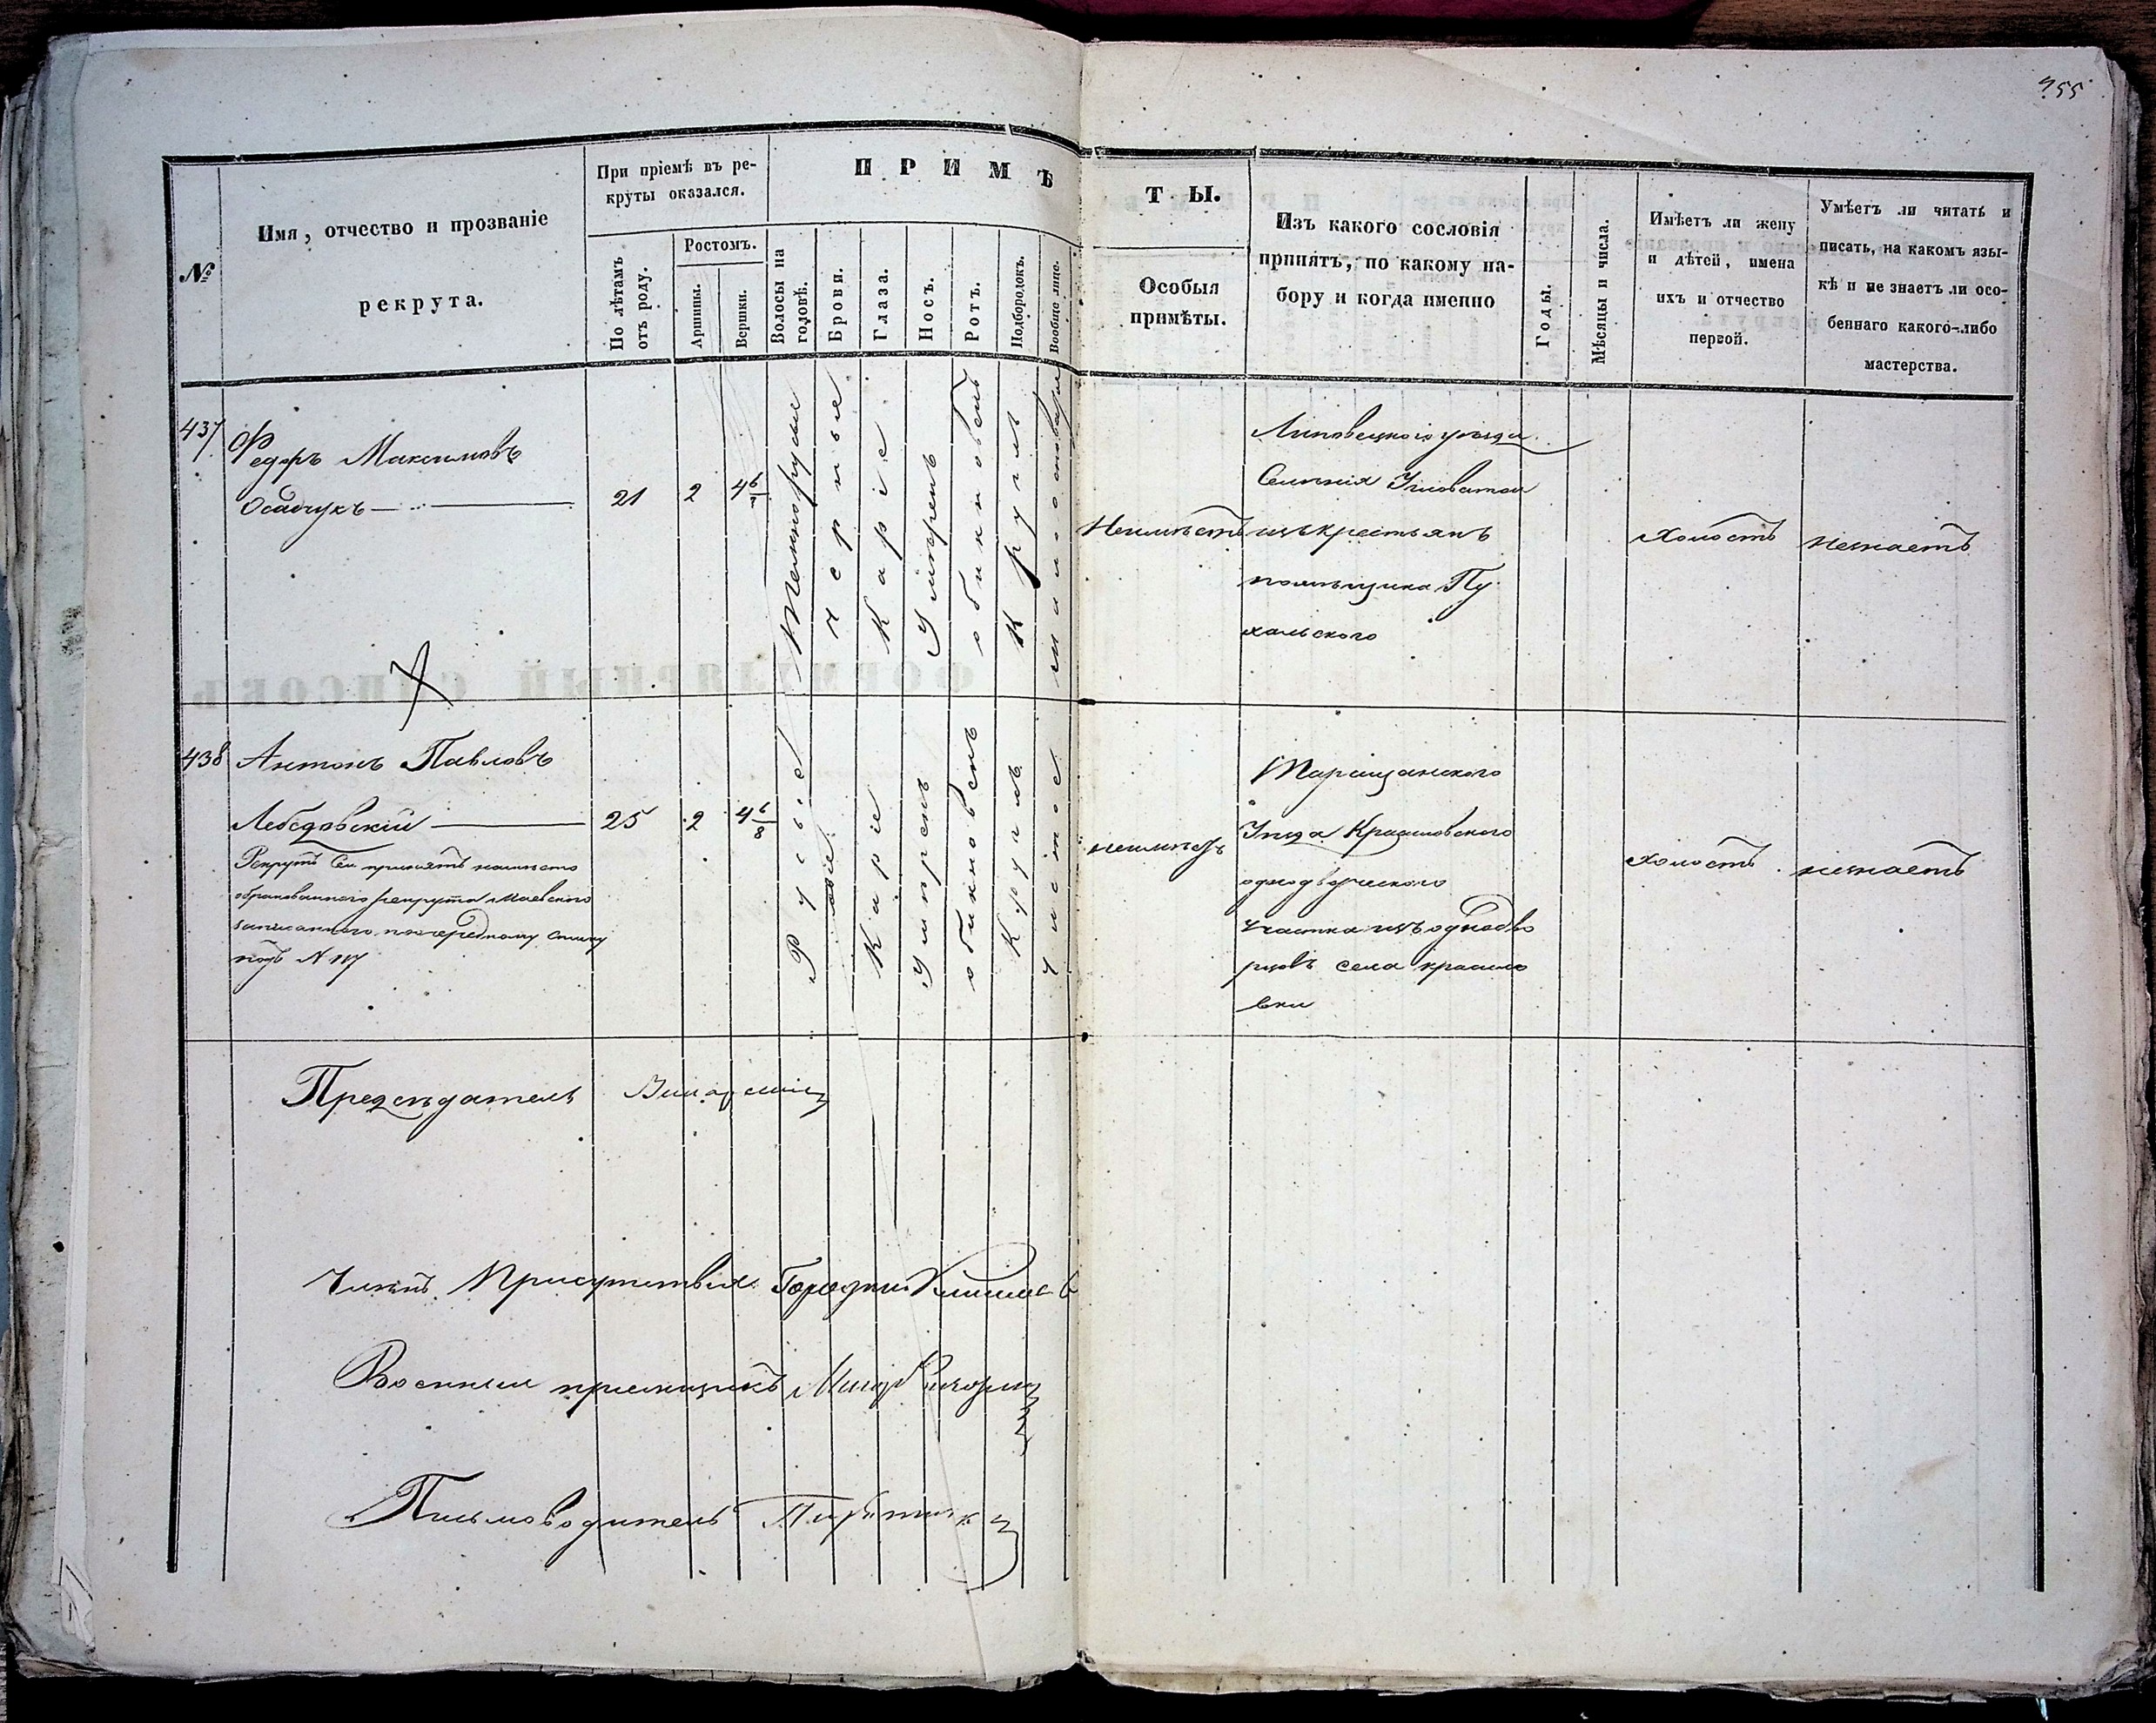 455
При пріемѣ въ ре-
круты оказался.
ПРИМѢ
ТЫ.
№
Имя, отчество и прозваніе
рекрута.
По лѣтамъ
отъ роду.
Ростомъ.
Аршины.
Вершки.
Волосы на
головѣ.
Брови.
Глаза.
Носъ.
Ротъ.
Подбородокъ.
Вообще лице.
Особыя
примѣты.
Изъ какого сословія
принятъ, по какому на-
бору и когда именно
Годы.
Мѣсяцы и числа.
Имѣетъ ли жену
и дѣтей, имена
ихъ и отчество
первой.
Умѣетъ ли читать и
писать, на какомъ язы-
кѣ и не знаетъ ли осо-
беннаго какого-либо
мастерства.
437
Федоръ Максимовъ
Осадчукъ
21
2
4
Темнорусые
черные
Каріе
Умѣренъ
обыкновенъ
Круглъ
Неимѣетъ
Липовецкаго уѣзда
Селенія
изъ крестьянъ
помѣщика Пу
хальского
Холостъ
незнаетъ
438
Антонъ Павловъ
Лебедовскій
Рекрутъ Сей принятъ намѣсто
обракованнаго рекрута Маевского
записанного поочередному списку
подъ N
25
2
4 6/8
Русые
Каріе
Умѣренъ
обыкновенъ
Круглъ
чистое
неимѣетъ
Таращанского
Уѣзда Красиловского
однодворческого
участка изъ однодво
рцовъ села красило
вки
холостъ
незнаетъ
Предсѣдатель
Членъ Присутствія
Военный приемщикъ
Письмоводитель